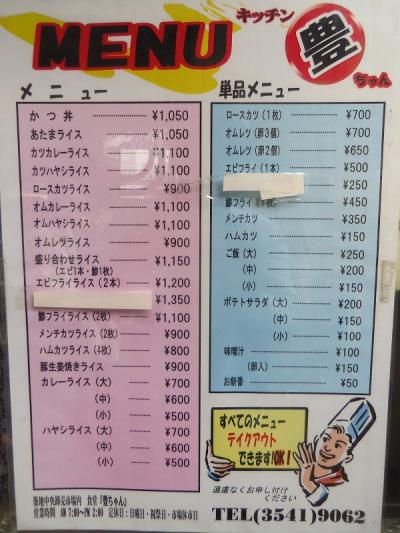 MENU
キッチン
豊
ちゃん
メニュー
かつ丼 ¥1,050
あたまライス ¥1,050
カツカレーライス ¥1,100
カツハヤシライス ¥1,100
ロースカツライス ¥900
オムカレーライス ¥1,100
オムハヤシライス ¥1,100
オムレツライス ¥900
盛り合わせライス ¥1,150
(エビ1本・鯵1枚)
エビフライライス (2本) ¥1,200
¥1,350
鯵フライライス (2枚) ¥1,100
メンチカツライス (2枚) ¥900
ハムカツライス (4枚) ¥800
豚生姜焼きライス ¥900
カレーライス (大) ¥700
(中) ¥600
(小) ¥500
ハヤシライス (大) ¥700
(中) ¥600
(小) ¥500
単品メニュー
ロースカツ (1枚) ¥700
オムレツ (卵3個) ¥700
オムレツ (卵2個) ¥650
エビフライ (1本) ¥500
¥250
鯵フライ (1枚) ¥450
メンチカツ ¥350
ハムカツ ¥150
ご飯 (大) ¥250
(中) ¥200
(小) ¥150
ポテトサラダ (大) ¥200
(中) ¥150
(小) ¥100
味噌汁 ¥100
(卵入) ¥150
お新香 ¥50
すべてのメニュー
テイクアウト
できます!OK!
遠慮なくお申し付け
ください
築地中央卸売市場内 食堂『豊ちゃん』
営業時間 AM 7:00〜PM 2:00 定休日:日曜日・祝祭日・市場休市日
TEL(3541)9062